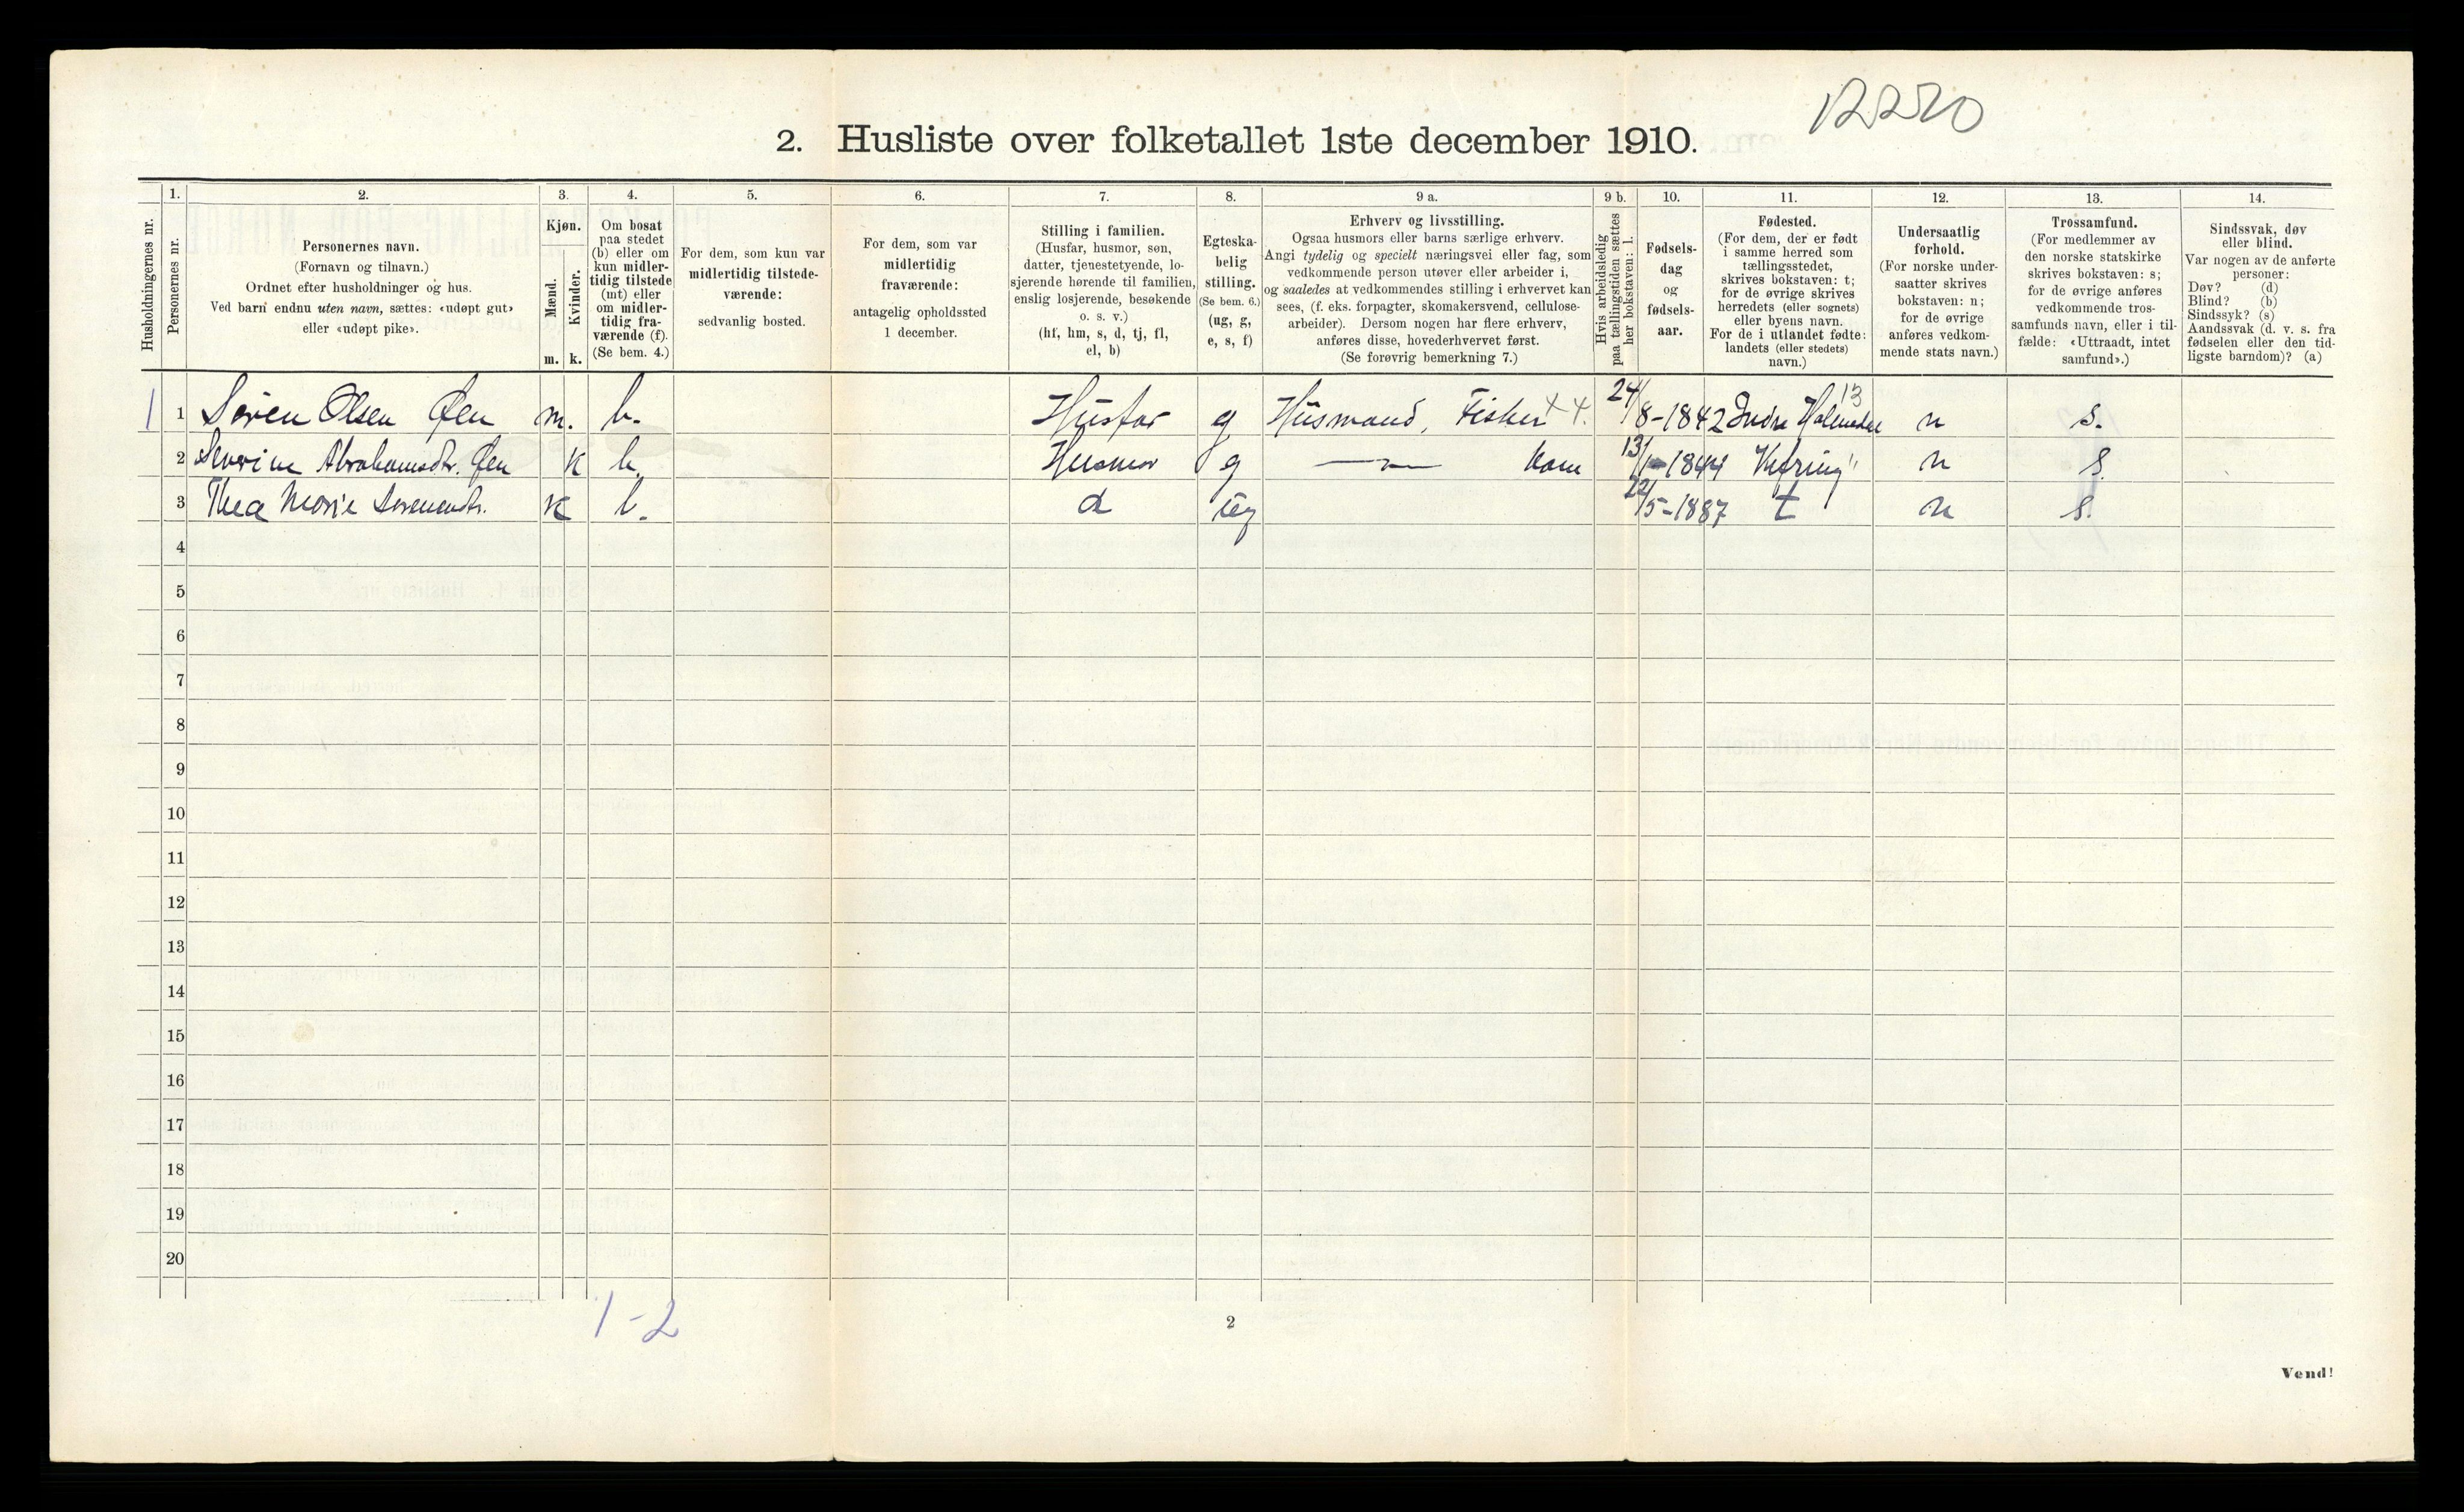 12220
2. Husliste over folketallet 1ste december 1910.
Husholdningernes nr.
1.
Personernes nr.
2.
Personernes navn.
(Fornavn og tilnavn.)
Ordnet efter husholdninger og hus.
Ved barn endnu uten navn, sættes: «udøpt gut»
eller «udøpt pike».
3.
Kjøn.
Mænd.
Kvinder.
m. k.
4.
Om bosat
paa stedet
(b) eller om
kun midler-
tidig tilstede
(mt) eller
om midler-
tidig fra-
værende (f).
(Se bem. 4.)
5.
For dem, som kun var
midlertidig tilstede-
værende:
sedvanlig bosted.
6.
For dem, som var
midlertidig
fraværende:
antagelig opholdssted
1 december.
7.
Stilling i familien.
(Husfar, husmor, søn,
datter, tjenestetyende, lo-
sjerende hørende til familien,
enslig losjerende, besøkende
o. s. v.)
(hf, hm, s, d, tj, fl,
el, b)
8.
Egteska-
belig
stilling.
(Se bem. 6.)
(ug, g,
e, s, f)
9 a.
Erhverv og livsstilling.
Ogsaa husmors eller barns særlige erhverv.
Angi tydelig og specielt næringsvei eller fag, som
vedkommende person utøver eller arbeider i,
og saaledes at vedkommendes stilling i erhvervet kan
sees, (f. eks. forpagter, skomakersvend, cellulose-
arbeider). Dersom nogen har flere erhverv,
anføres disse, hovederhvervet først.
(Se forøvrig bemerkning 7.)
9 b.
Hvis arbeidsledig
paa tællingstiden sættes
her bokstaven: l.
10.
Fødsels-
dag
og
fødsels-
aar.
11.
Fødested.
(For dem, der er født
i samme herred som
tællingsstedet,
skrives bokstaven: t;
for de øvrige skrives
herredets (eller sognets)
eller byens navn.
For de i utlandet fødte:
landets (eller stedets)
navn.)
12.
Undersaatlig
forhold.
(For norske under-
saatter skrives
bokstaven: n;
for de øvrige
anføres vedkom-
mende stats navn.)
13.
Trossamfund.
(For medlemmer av
den norske statskirke
skrives bokstaven: s;
for de øvrige anføres
vedkommende tros-
samfunds navn, eller i til-
fælde: «Uttraadt, intet
samfund».)
14.
Sindssvak, døv
eller blind.
Var nogen av de anførte
personer:
Døv? (d)
Blind? (b)
Sindssyk? (s)
Aandssvak (d. v. s. fra
fødselen eller den tid-
ligste barndom)? (a)
1 1 Søren Olsen Øen m. b. Husfar g Husmand, Fisker 24/8-1842 Indre 13 n s.
2 Severine Abrahamsdtr. Øen k b. Husmor g kone 13/1-1844 n s.
3 Thea Marie Sørensdtr. k b. d ug 22/5-1887 t n s.
4
5
6
7
8
9
10
11
12
13
14
15
16
17
18
19
20
1-2
2
Vend!